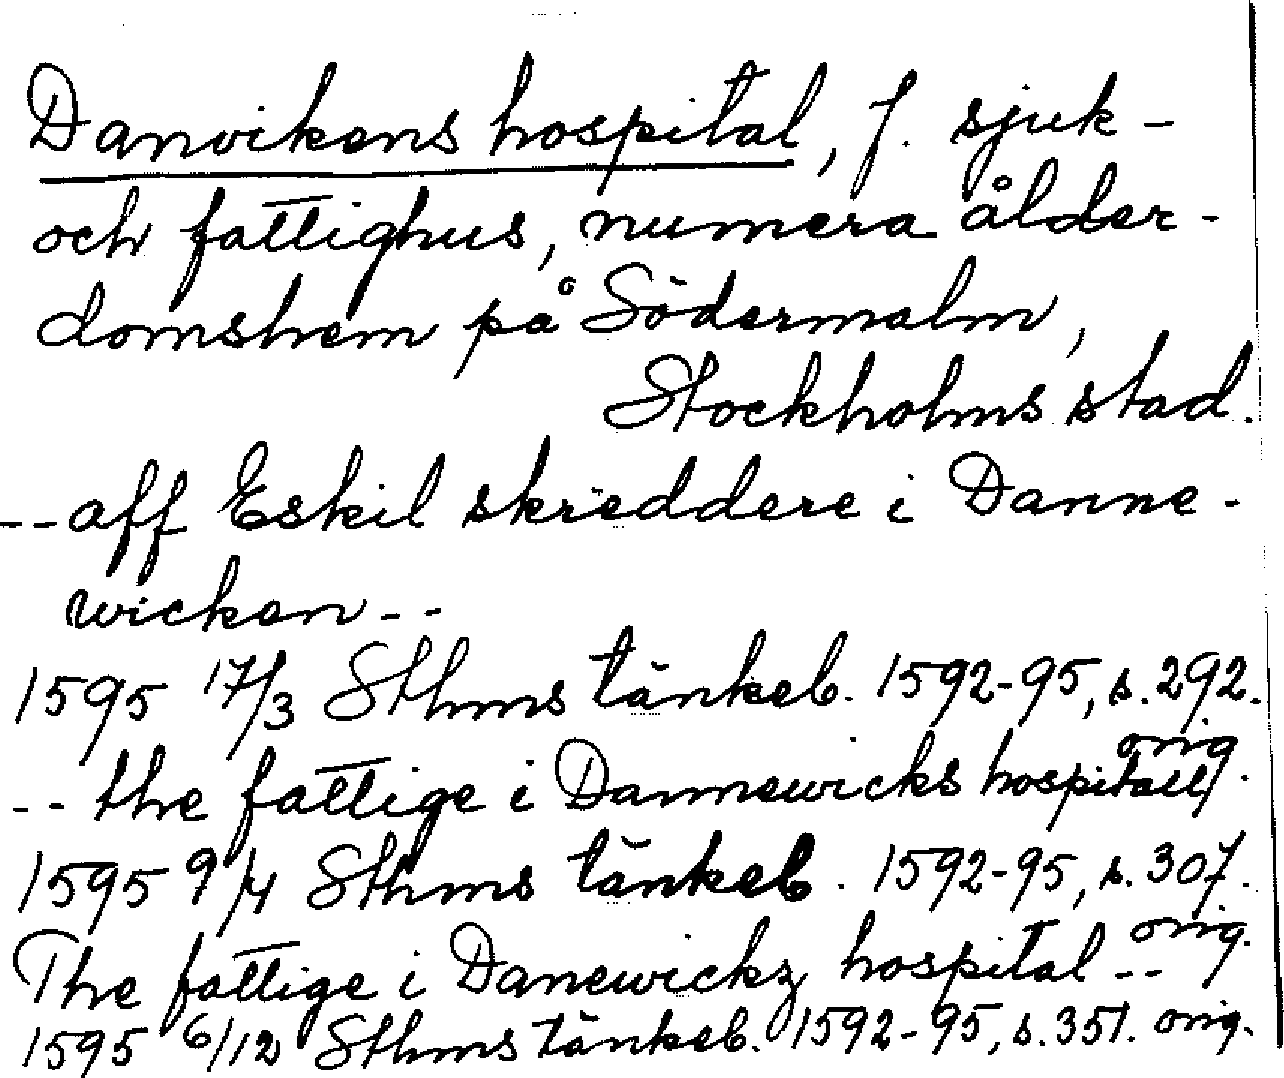 Danvikens hospital, f. sjuk-
och fattighus, numera ålder-
domshem på Södermalm,
Stockholms stad.
-- aff Eskil skreddere i Danne-
wicken --
1595 17/3 Sthms tänkeb. 1592-95, s. 292.
orig.
-- the fattige i Dannewicks hospitall
1595 9/4 Sthms tänkeb. 1592-95, s. 307.
orig.
The fattige i Danewickz hospital --
1595 6/12 Sthms tänkeb. 1592-95, s. 351. orig.